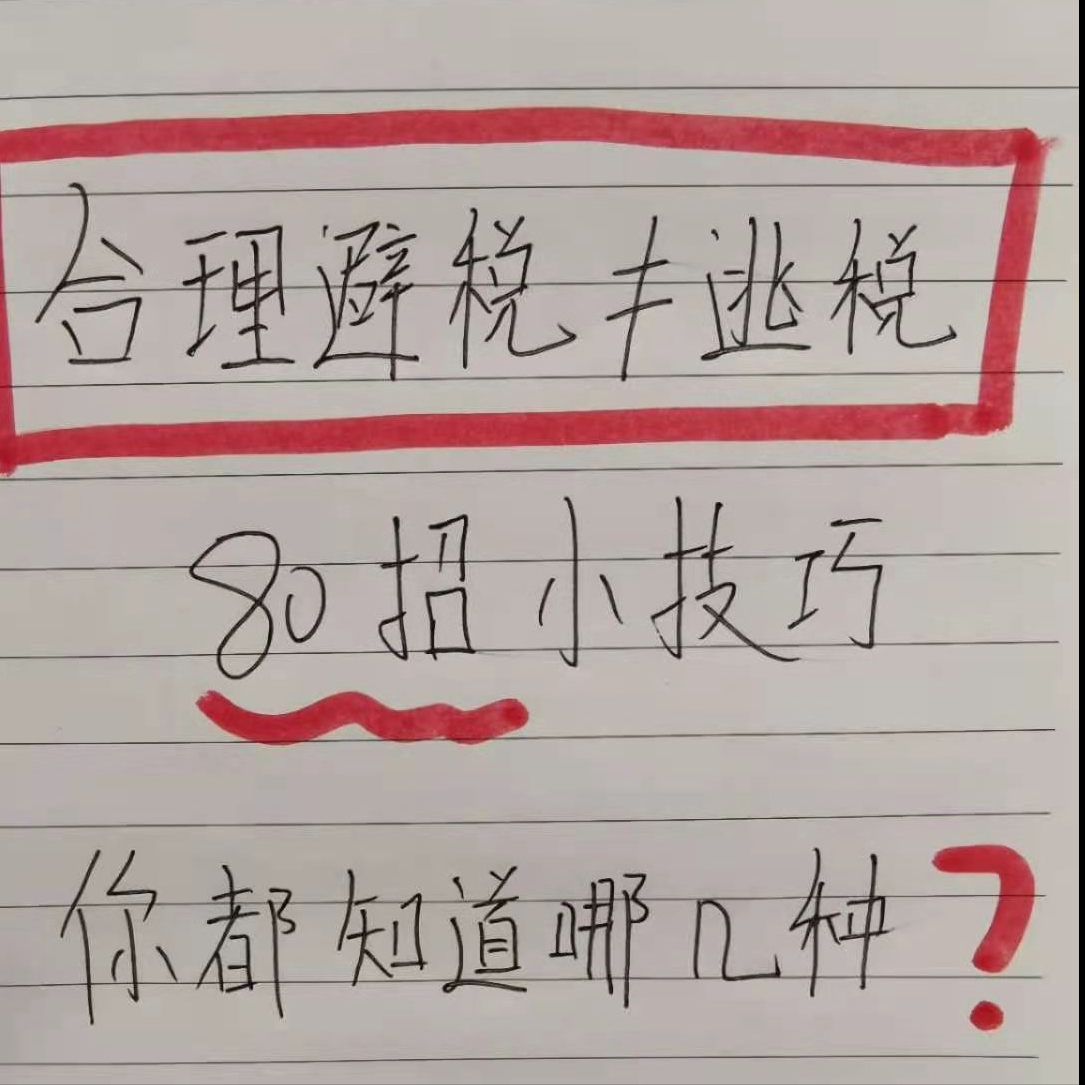 合理避税≠逃税
80招小技巧
你都知道哪几种?